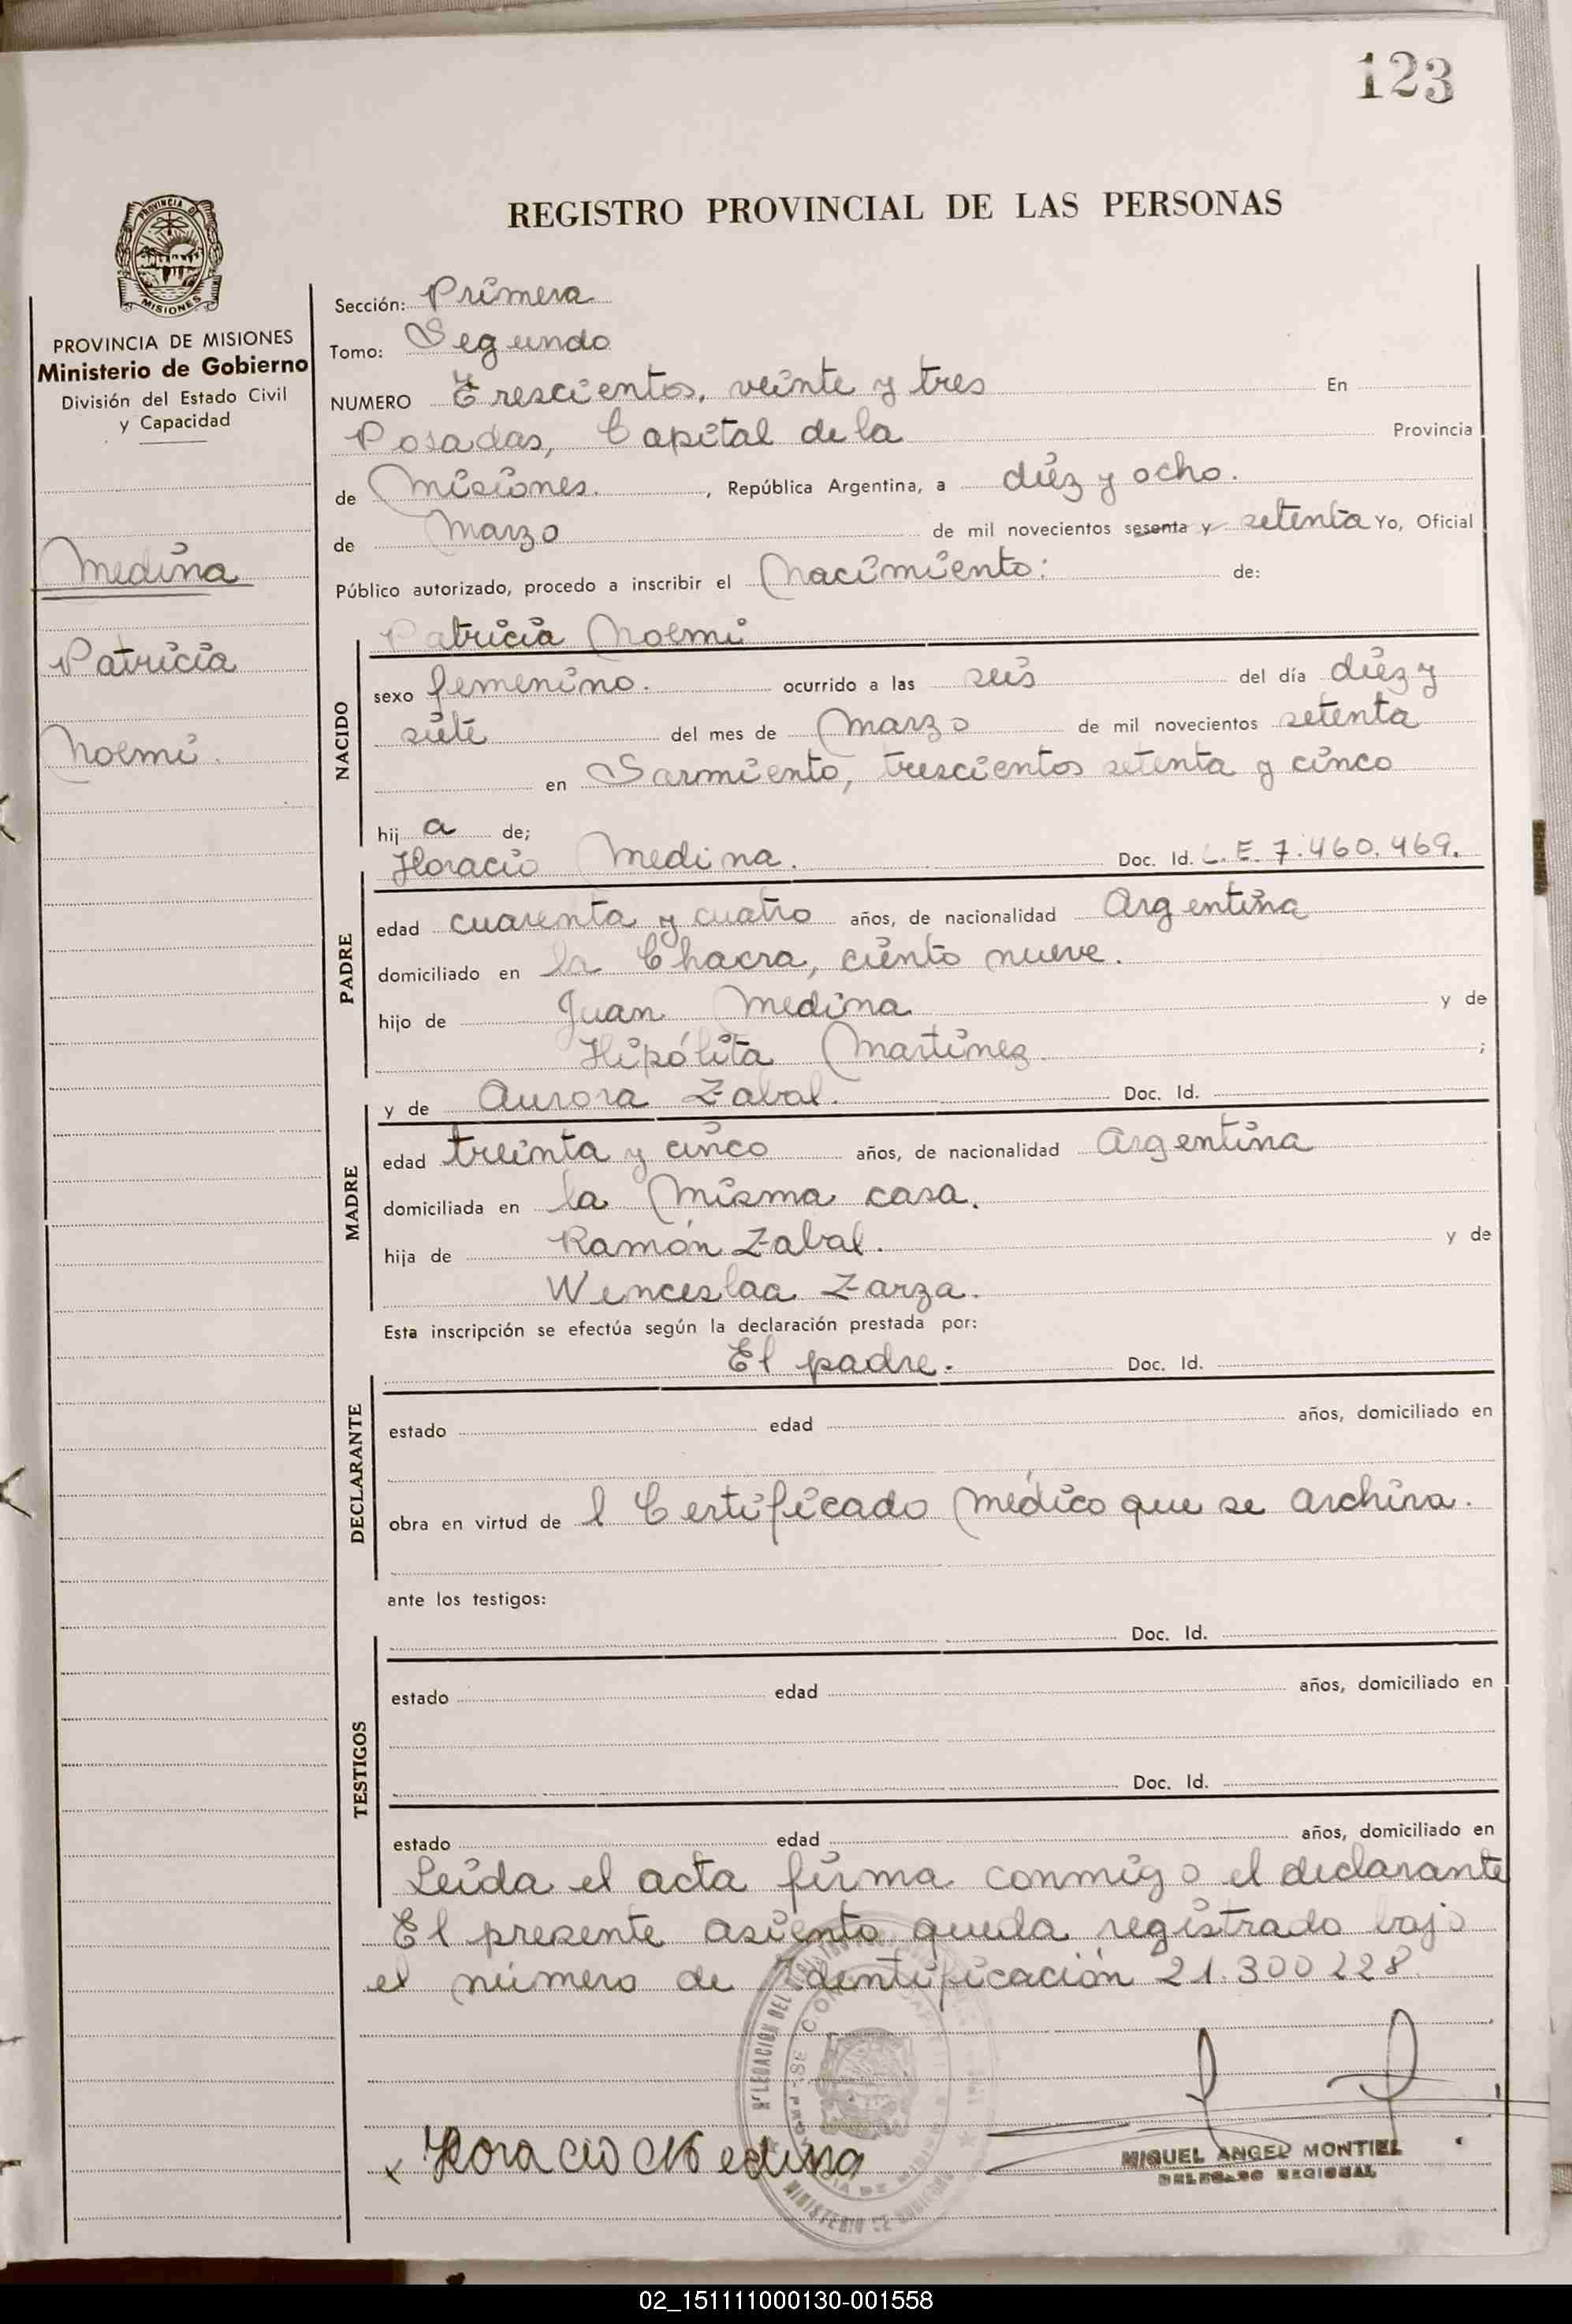 123
REGISTRO PROVINCIAL DE LAS PERSONAS
PROVINCIA DE MISIONES
Ministerio de Gobierno
División del Estado Civil
y Capacidad
Medina
Patricia
Noemi.
Sección: Primera
Tomo: Segundo
NUMERO Trescientos, veinte y tres En
Posadas, Capital de la Provincia
de Misiones. , República Argentina, a diez y ocho.
de Marzo de mil novecientos sesenta y setenta Yo, Oficial
Público autorizado, procedo a inscribir el Nacimiento: de:
NACIDO
Patricia Noemi
sexo femenino. ocurrido a las seis del día diez y
siete del mes de Marzo de mil novecientos setenta
en Sarmiento, trescientos setenta y cinco
hij a de;
PADRE
Horacio Medina. Doc. Id. L. E. 7.460.469.
edad cuarenta y cuatro años, de nacionalidad Argentina
domiciliado en la Chacra, ciento nueve.
hijo de Juan Medina y de
Hipólita Martinez. ;
MADRE
y de Aurora Zabal. Doc. Id.
edad treinta y cinco años, de nacionalidad Argentina
domiciliada en la Misma casa.
hija de Ramón Zabal. y de
Wenceslaa Zarza.
Esta inscripción se efectúa según la declaración prestada por:
DECLARANTE
El padre. Doc. Id.
estado edad años, domiciliado en
obra en virtud de l Certificado Médico que se archiva.
ante los testigos:
TESTIGOS
Doc. Id.
estado edad años, domiciliado en
Doc. Id.
estado edad años, domiciliado en
Leida el acta firma conmigo el declarante
El presente asiento queda registrado bajo
el número de Identificación 21.300228.
x Horacio Medina
MIGUEL ANGEL MONTIEL
DELEGADO REGIONAL
02_151111000130-001558